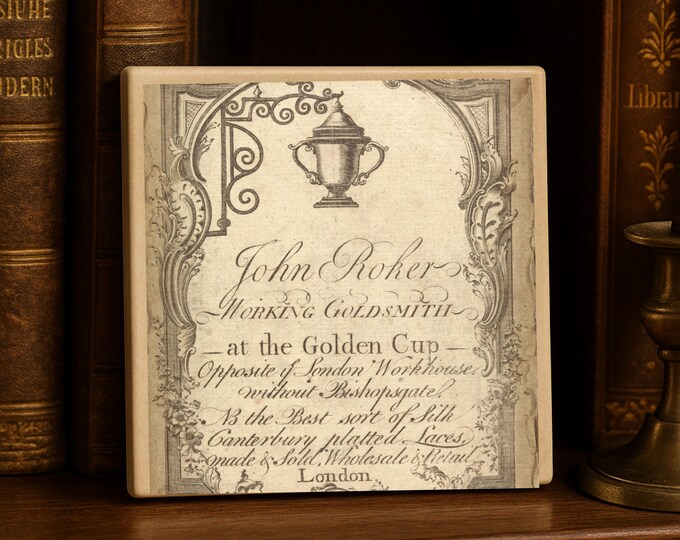 SIUHE
RICLES
NDERN
Librar
John Roker
Working Goldsmith
— at the Golden Cup —
Opposite ye London Workhouse,
without Bishopsgate.
NB the Best sort of Silk
Canterbury platted Laces,
made & Sold, Wholesale & Retail
London.